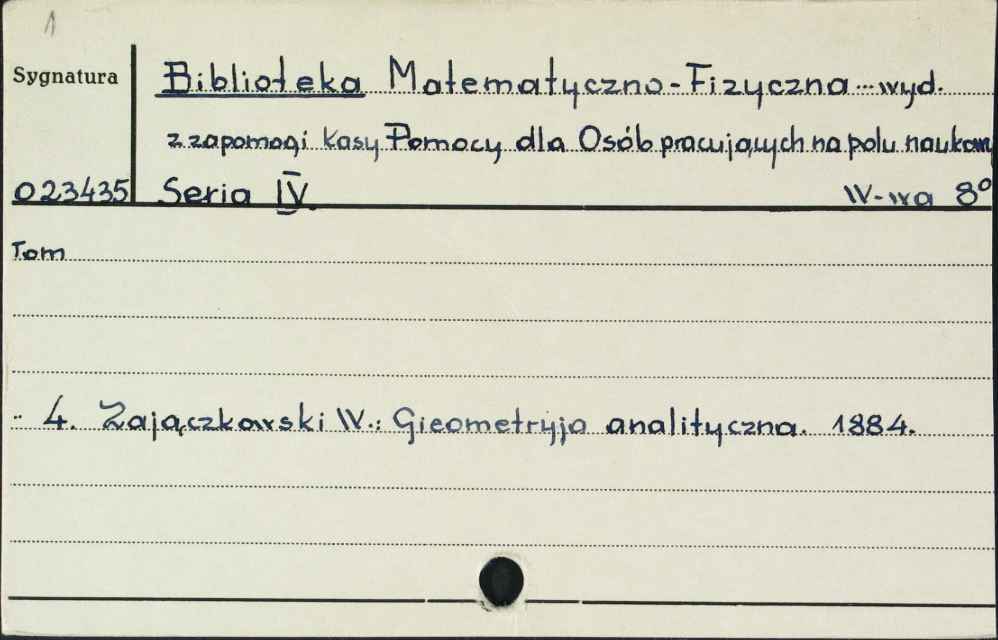 1
Sygnatura
Biblioteka Matematyczno-Fizyczna ... wyd.
z zapomogi Kasy Pomocy dla Osób pracujących na polu naukow
023435 Seria IV. W-wa 8°
Tom
" 4. Zajączkowski W.: Gieometryja analityczna. 1884.